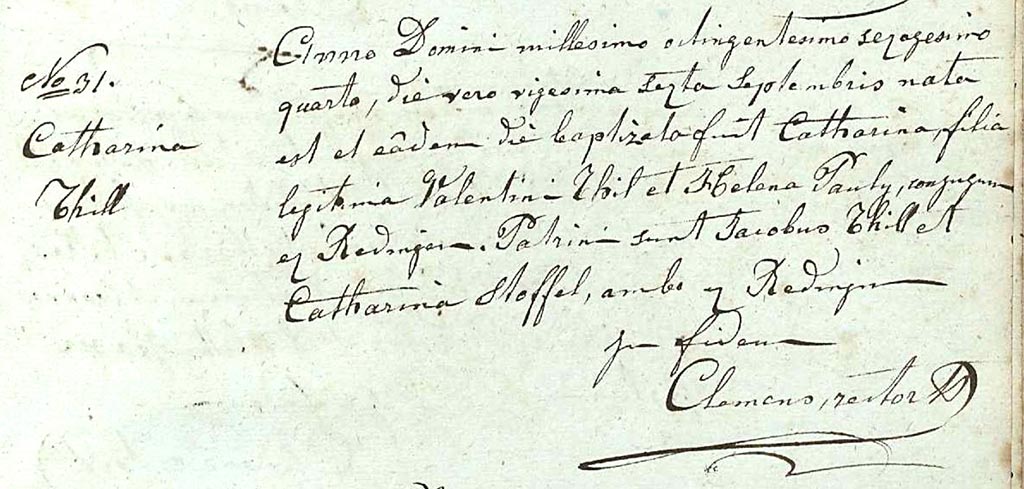 No 31.
Catharina
Thill
Anno Domini millesimo octingentesimo sexagesimo
quarto, die vero vigesima sexta Septembris nata
est et eâdem die baptizata fuit Catharina, filia
legitima Valentini Thil et Helena Pauly, conjugum
ex Redingen. Patrini sunt Jacobus Thill et
Catharina Stoffel, ambo ex Redingen
in fidem
Clemens, rector